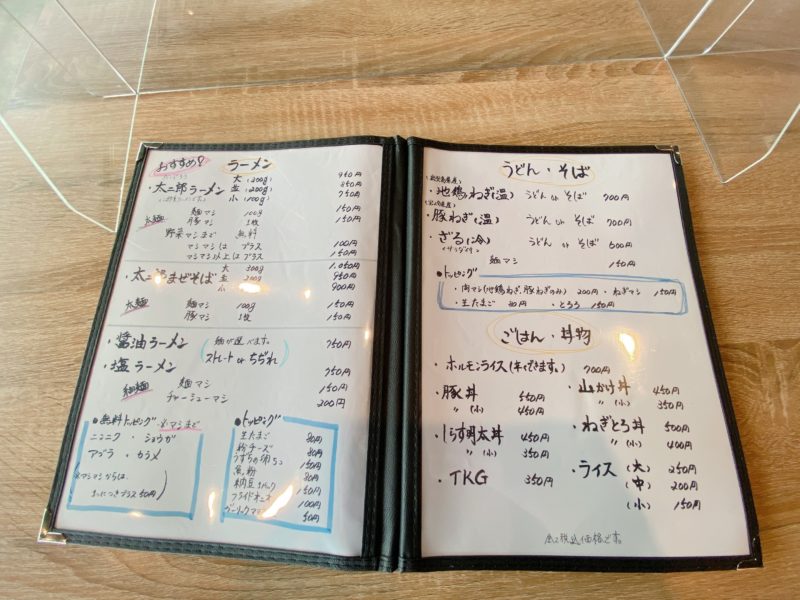 おすすめ！ ラーメン
・太二郎ラーメン 大(300g) 950円
並(200g) 850円
小(100g) 750円
太麺 麺マシ 100g 150円
豚マシ 1枚 150円
野菜マシまで 無料
マシマシは プラス 100円
マシマシ以上は プラス 150円
・太二郎まぜそば 大 300g 1,050円
並 200g 950円
小 900円
太麺 麺マシ 100g 150円
豚マシ 1枚 150円
・醤油ラーメン (麺が選べます。 750円
ストレート or ちぢれ)
・塩ラーメン 750円
細麺 麺マシ 150円
チャーシューマシ 200円
●無料トッピング ※マシまで
ニンニク ・ ショウガ
アブラ ・ カラメ
※マシマシからは、
1つにつきプラス50円)
●トッピング
生たまご 80円
粉チーズ 80円
うずらの卵5コ 150円
魚粉 80円
納豆1パック 150円
フライドオニオン 100円
ガーリックマヨ 50円
うどん・そば
・地鶏ねぎ(温) うどん or そば 700円
・豚ねぎ(温) うどん or そば 700円
・ざる(冷) うどん or そば 600円
麺マシ 150円
●トッピング
・肉マシ(地鶏ねぎ、豚ねぎのみ) 200円 ・ねぎマシ 150円
・生たまご 80円 ・とろろ 150円
ごはん・丼物
・ホルモンライス(半々できます。) 700円
・豚丼 550円
〃(小) 450円
・しらす明太丼 450円
〃(小) 350円
・TKG 350円
・山かけ丼 450円
〃(小) 350円
・ねぎとろ丼 500円
〃(小) 400円
・ライス (大) 250円
(中) 200円
(小) 150円
全て税込価格です。